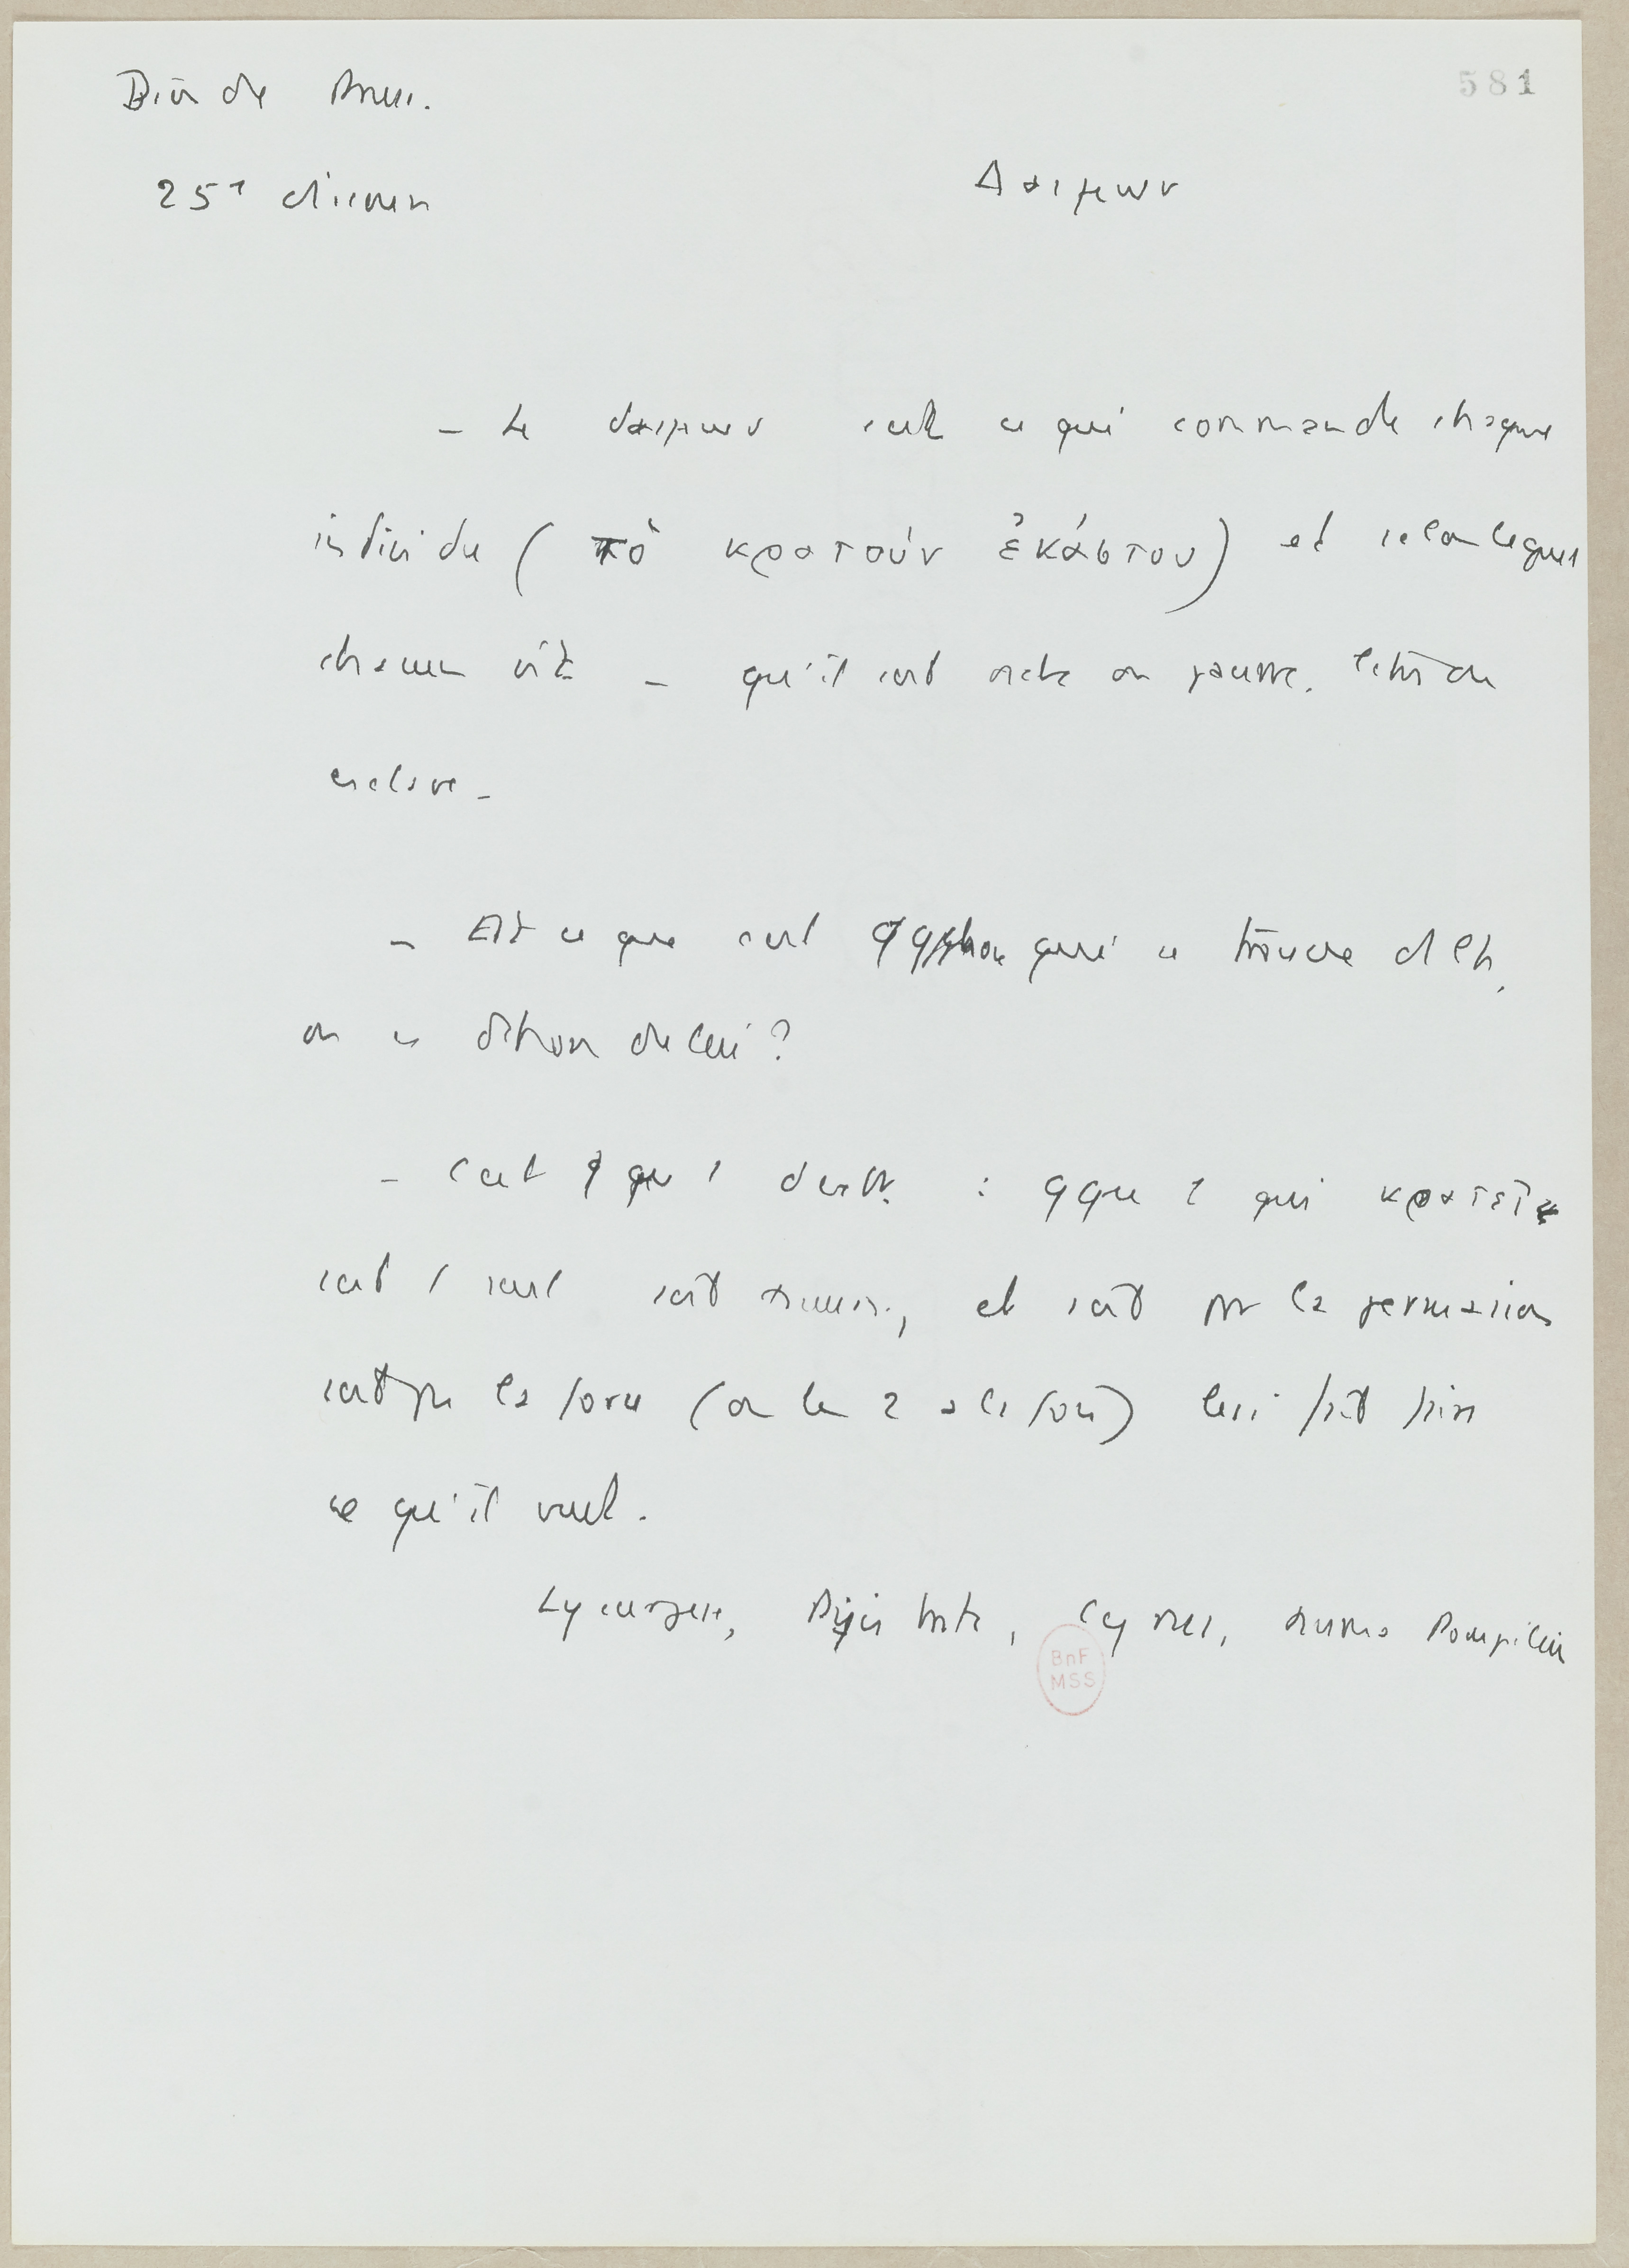 Dion de Pruse.
581
25e discours
Δαιμων
– Le δαιμων c'est ce qui commande chaque
individu (τὸ κρατοὺν ἑκάστου) et selon lequel
chacun vit – qu'il soit riche ou pauvre, libre ou
esclave –
– Est ce que c'est qqchose qui se trouve ds l'h,
ou en dehors de lui ?
– C'est qqu'1 d'autre : qqu'1 qui κρατεῖ
et soit par la persuasion
soit par la force (ou les 2 à la fois) lui fait faire
ce qu'il veut.
Lycurgue, Pisistrate, Cyrus, Numa Pompilius
BnF
MSS